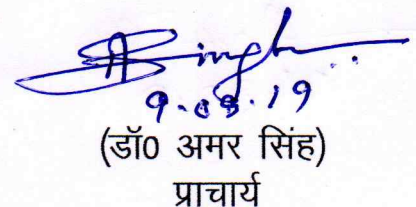 ASingh
9.09.19
(डॉ0 अमर सिंह)
प्राचार्य